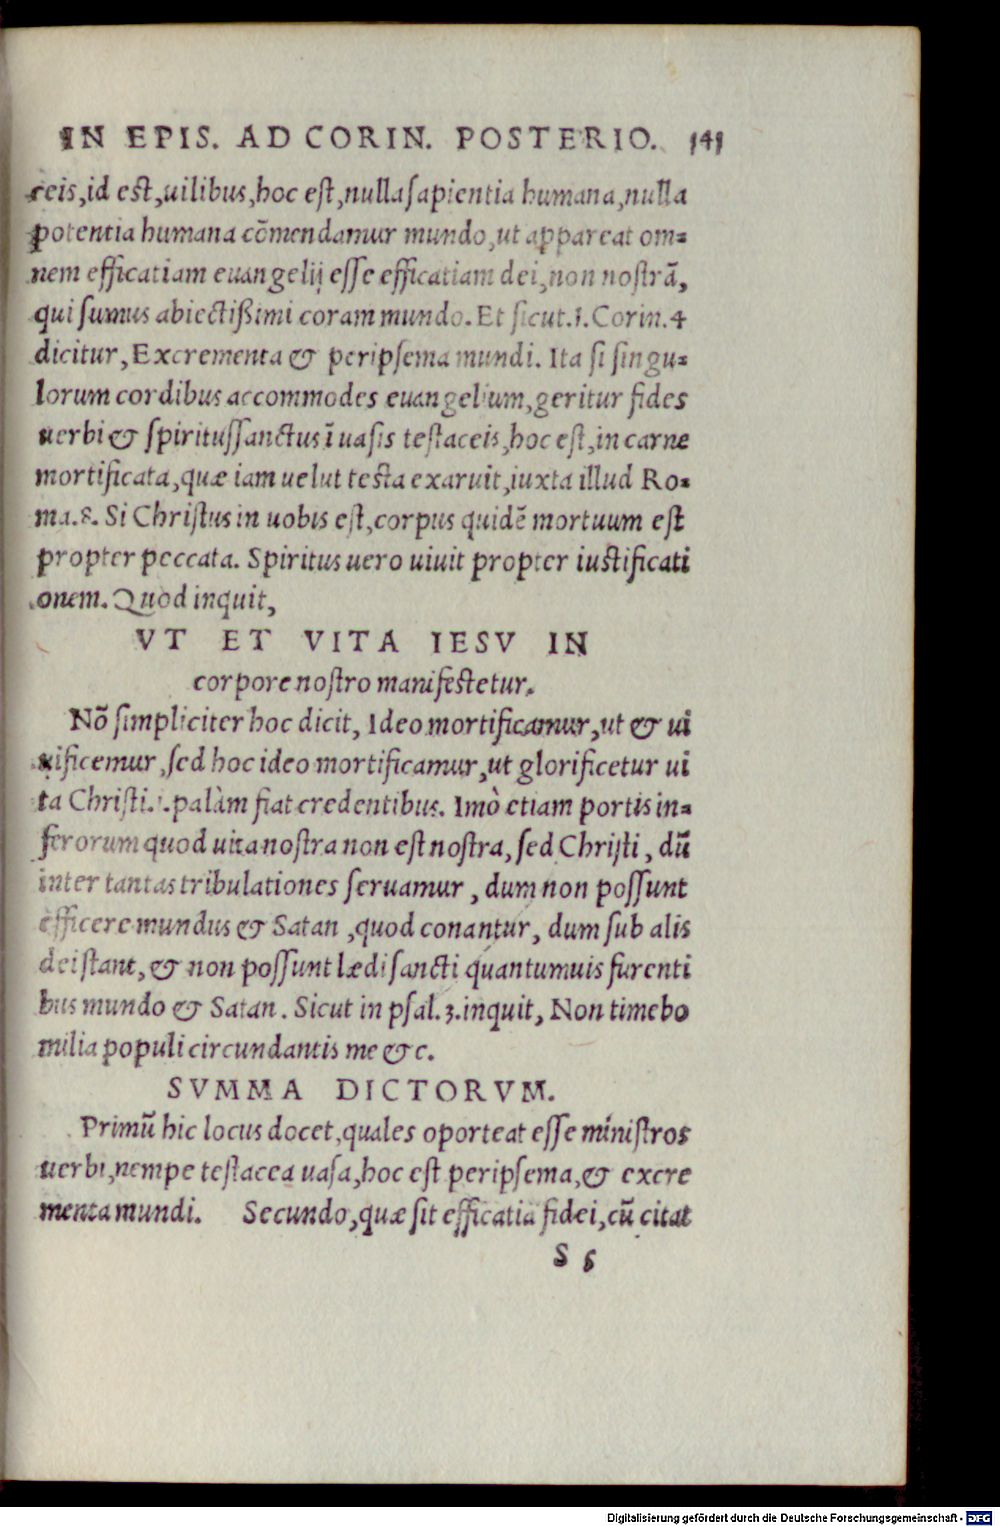 IN EPIS. AD CORIN. POSTERIO. 141
ceis,id est,uilibus,hoc est,nulla sapientia humana,nulla
potentia humana cōmendamur mundo,ut appareat om=
nem efficatiam euangelij esse efficatiam dei,non nostrā,
qui sumus abiectißimi coram mundo. Et sicut.1.Corin.4
dicitur, Excrementa & peripsema mundi. Ita si singu=
lorum cordibus accommodes euangelium,geritur fides
uerbi & spiritussanctus ī uasis testaceis,hoc est,in carne
mortificata,quæ iam uelut testa exaruit,iuxta illud Ro=
ma.8. Si Christus in uobis est,corpus quidē mortuum est
propter peccata. Spiritus uero uiuit propter iustificati
onem. Quod inquit,
VT ET VITA IESV IN
corpore nostro manifestetur.
Nō simpliciter hoc dicit, Ideo mortificamur,ut & ui
uificemur,sed hoc ideo mortificamur,ut glorificetur ui
ta Christi.i.palàm fiat credentibus. Imò etiam portis in=
ferorum quod uita nostra non est nostra, sed Christi, dū
inter tantas tribulationes seruamur, dum non possunt
efficere mundus & Satan ,quod conantur, dum sub alis
dei stant,& non possunt lædi sancti quantumuis furenti
bus mundo & Satan. Sicut in psal.3.inquit, Non timebo
milia populi circundantis me &c.
SVMMA DICTORVM.
Primū hic locus docet,quales oporteat esse ministros
uerbi,nempe testacea uasa,hoc est peripsema,& excre
menta mundi. Secundo,quæ sit efficatia fidei,cū citat
S 5
Digitalisierung gefördert durch die Deutsche Forschungsgemeinschaft - DFG